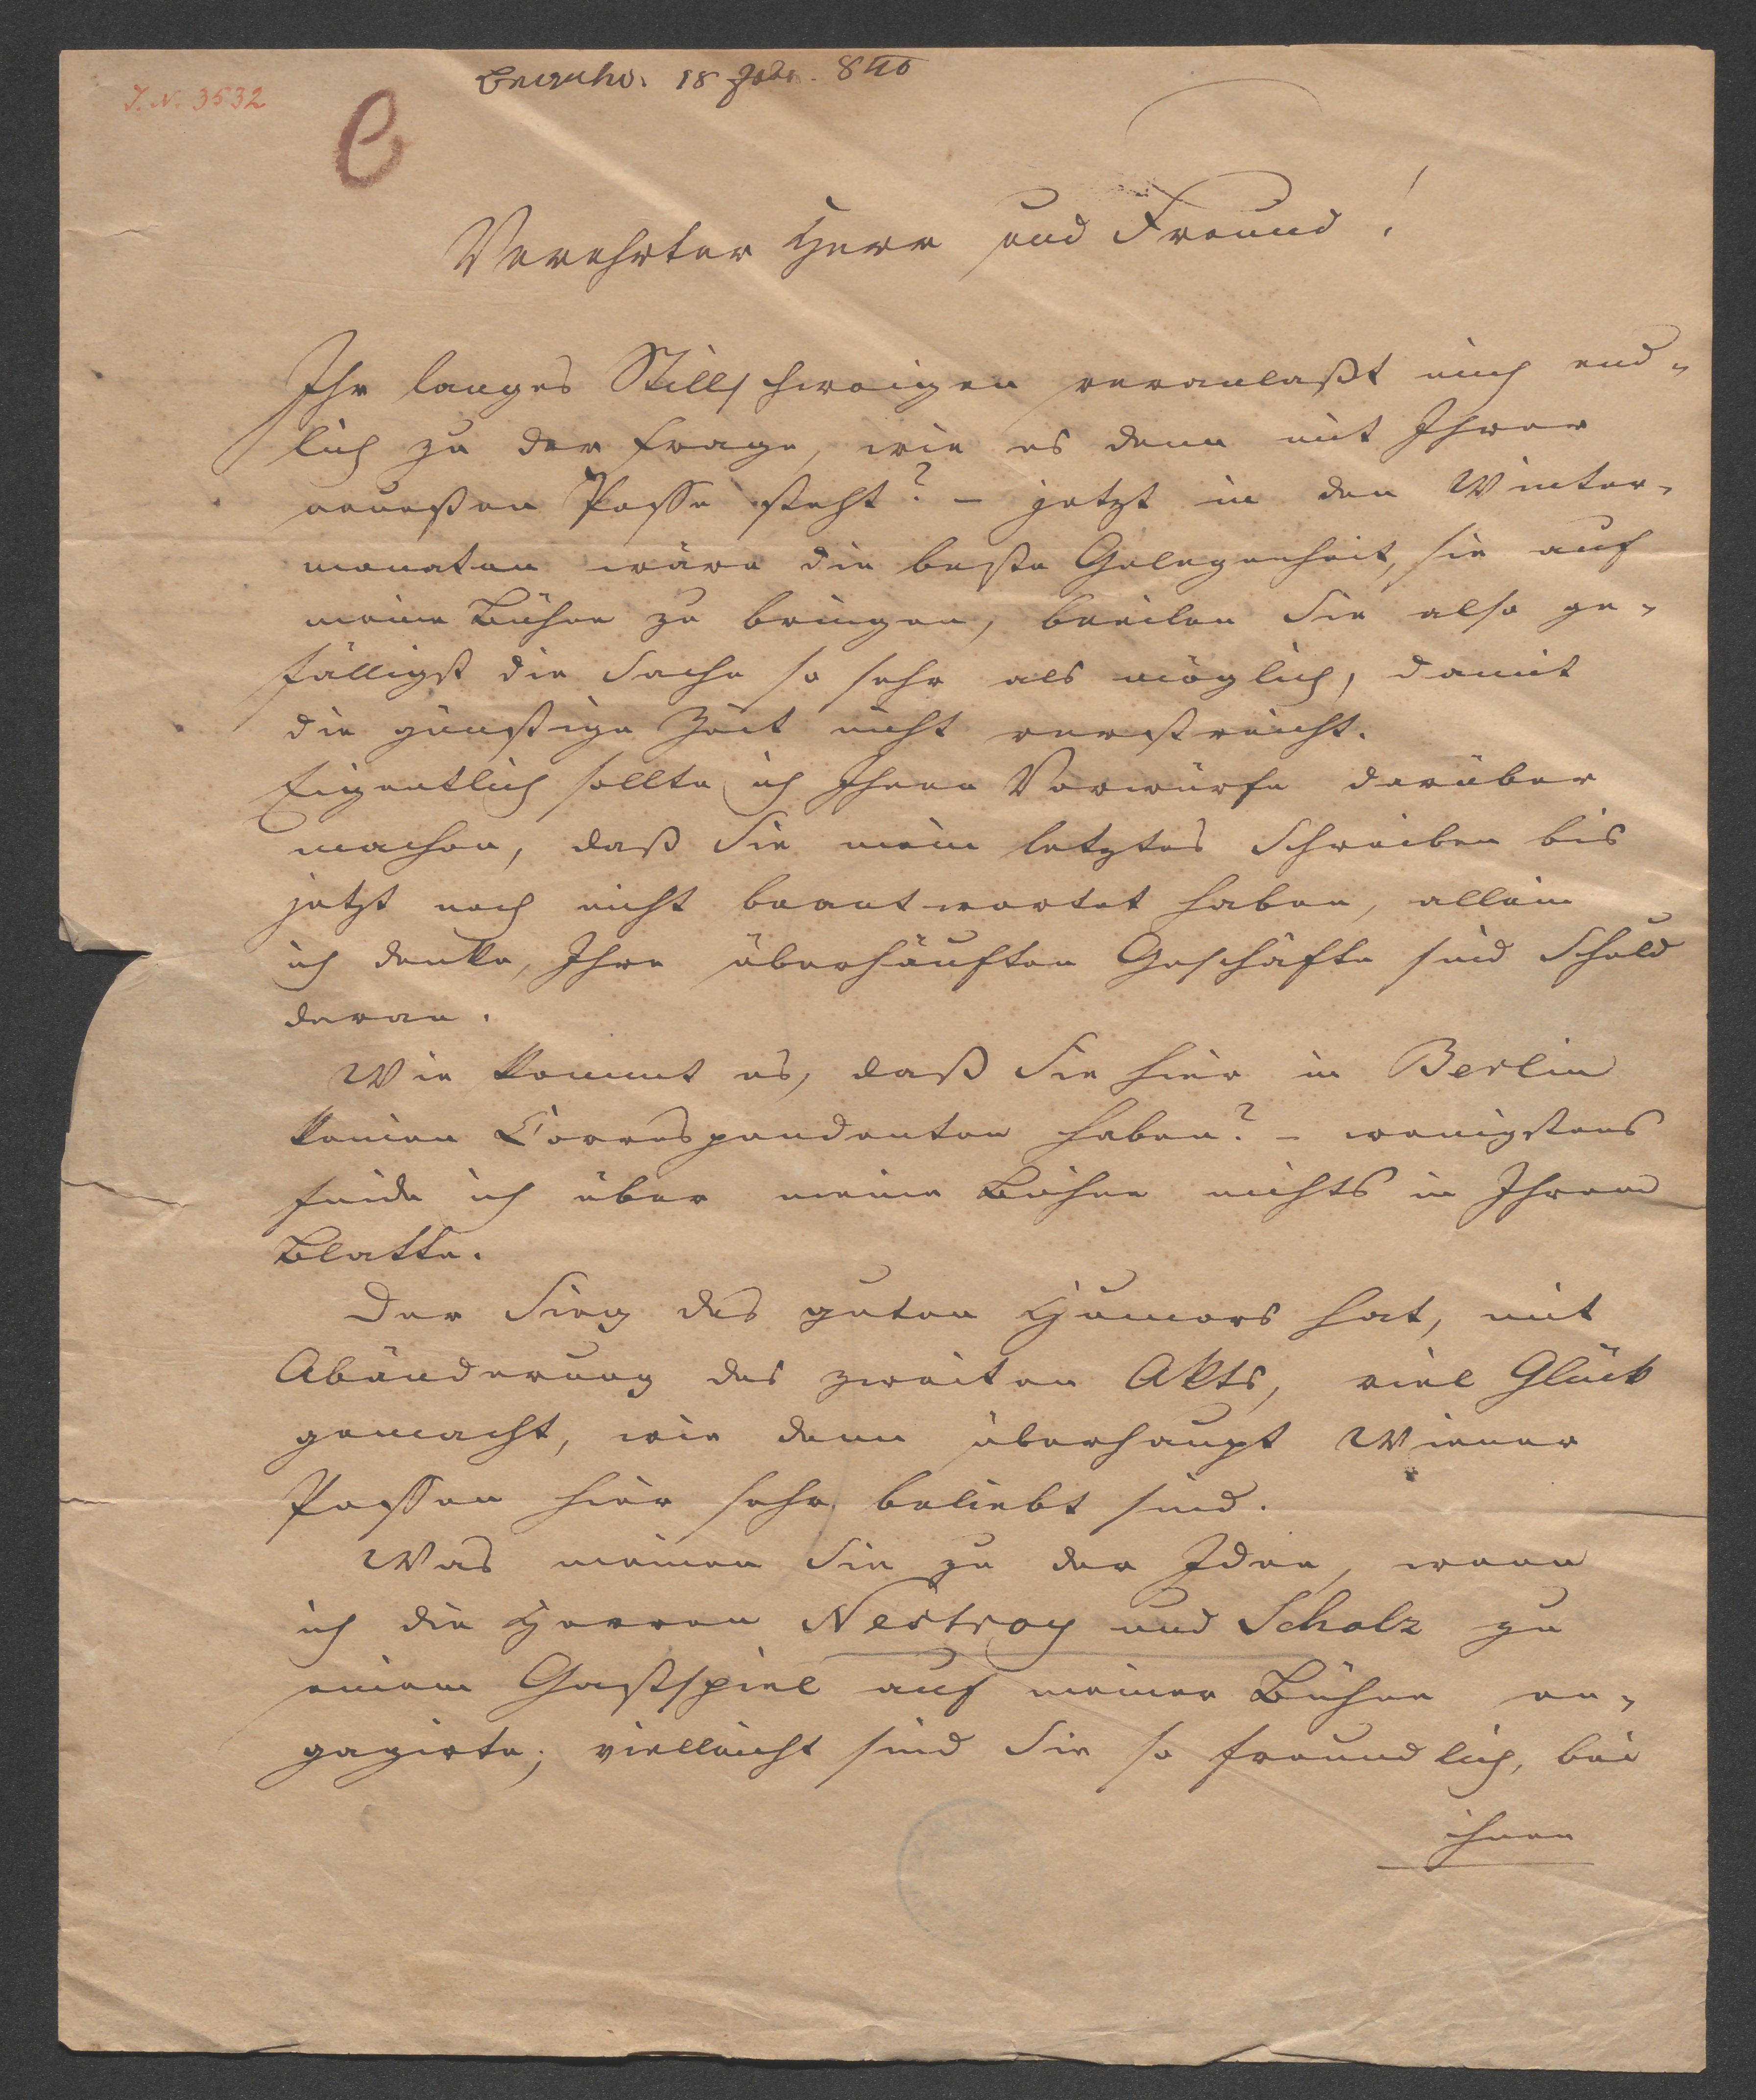 J. N. 3532
18 Febr. 840
C
Verehrter Herr und Freund!
Ihr langes Stillschweigen veranlaßt mich end-
lich zu der Frage, wie es denn mit Ihrer
neuesten Posse steht? – jetzt in den Winter-
monaten wäre die beste Gelegenheit, sie auf
meine Bühne zu bringen, beeilen Sie also ge-
fälligst die Sache so sehr als möglich, damit
die günstige Zeit nicht verstreicht.
Eigentlich sollte ich Ihnen Vorwürfe darüber
machen, daß Sie mein letztes Schreiben bis
jetzt noch nicht beantwortet haben, allein
ich denke, Ihre überhäuften Geschäfte sind Schuld
daran.
Wie kommt es, daß Sie hier in Berlin
keinen Correspondenten haben? – wenigstens
finde ich über meine Bühne nichts in Ihrem
Blatte.
Der Sieg des guten Humors hat, mit
Abänderung des zweiten Akts, viel Glück
gemacht, wie denn überhaupt Wiener
Possen hier sehr beliebt sind.
Was meinen Sie zu der Idee, wenn
ich die Herren Nestroy und Scholz zu
einem Gastspiel auf meiner Bühne en-
gagirte; vielleicht sind Sie so freundlich, bei
ihnen